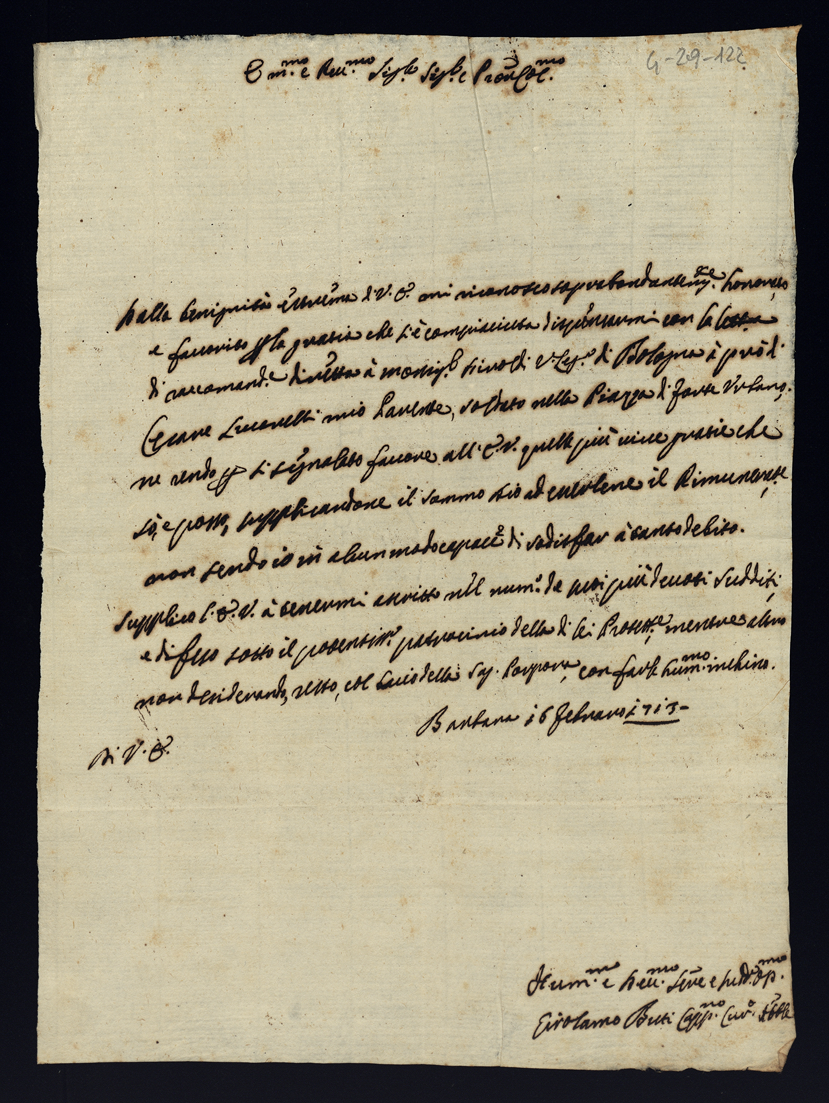 G-29-122
Em.mo e Reu.mo Sig.re Sig.re e Prõn Col.mo
Dalla benignità estrema di V. E. mi riconosco soprabondantem.te honorato,
e favorito p la gratia che s'è compiaciuta dispensarmi con la lettera
di raccomand.e diretta à Monsig.r di Bologna à prò di
Cesare Lucarelli mio Parente, soldato nella Piazza di Forte Urbano,
ne rendo p sì segnalato favore all'E. V. quelle più vive gratie che
sò, e posso, supplicandone il sommo Dio ad esserlene il Rimunerate,
non sendo io in alcun modo capace di sodisfar à tanto debito.
Supplico l'E. V. à tenermi ascritto nel num.o de suoi più devoti sudditi,
e difeso sotto il potentiss.o patrocinio della di lei Protett.e, mentre altro
non desiderando, resto, col bacio della Sag. Porpora, con farle hum.mo inchino.
Barbara 16 Febraro 1713-
Di V. E.
Hum.mo e Deu.mo Ser.e e sudd. Op.mo
Girolamo Buti Capp.no Cur.o